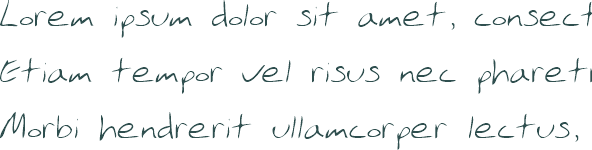 Lorem ipsum dolor sit amet, consect
Etiam tempor vel risus nec pharetr
Morbi hendrerit ullamcorper lectus,